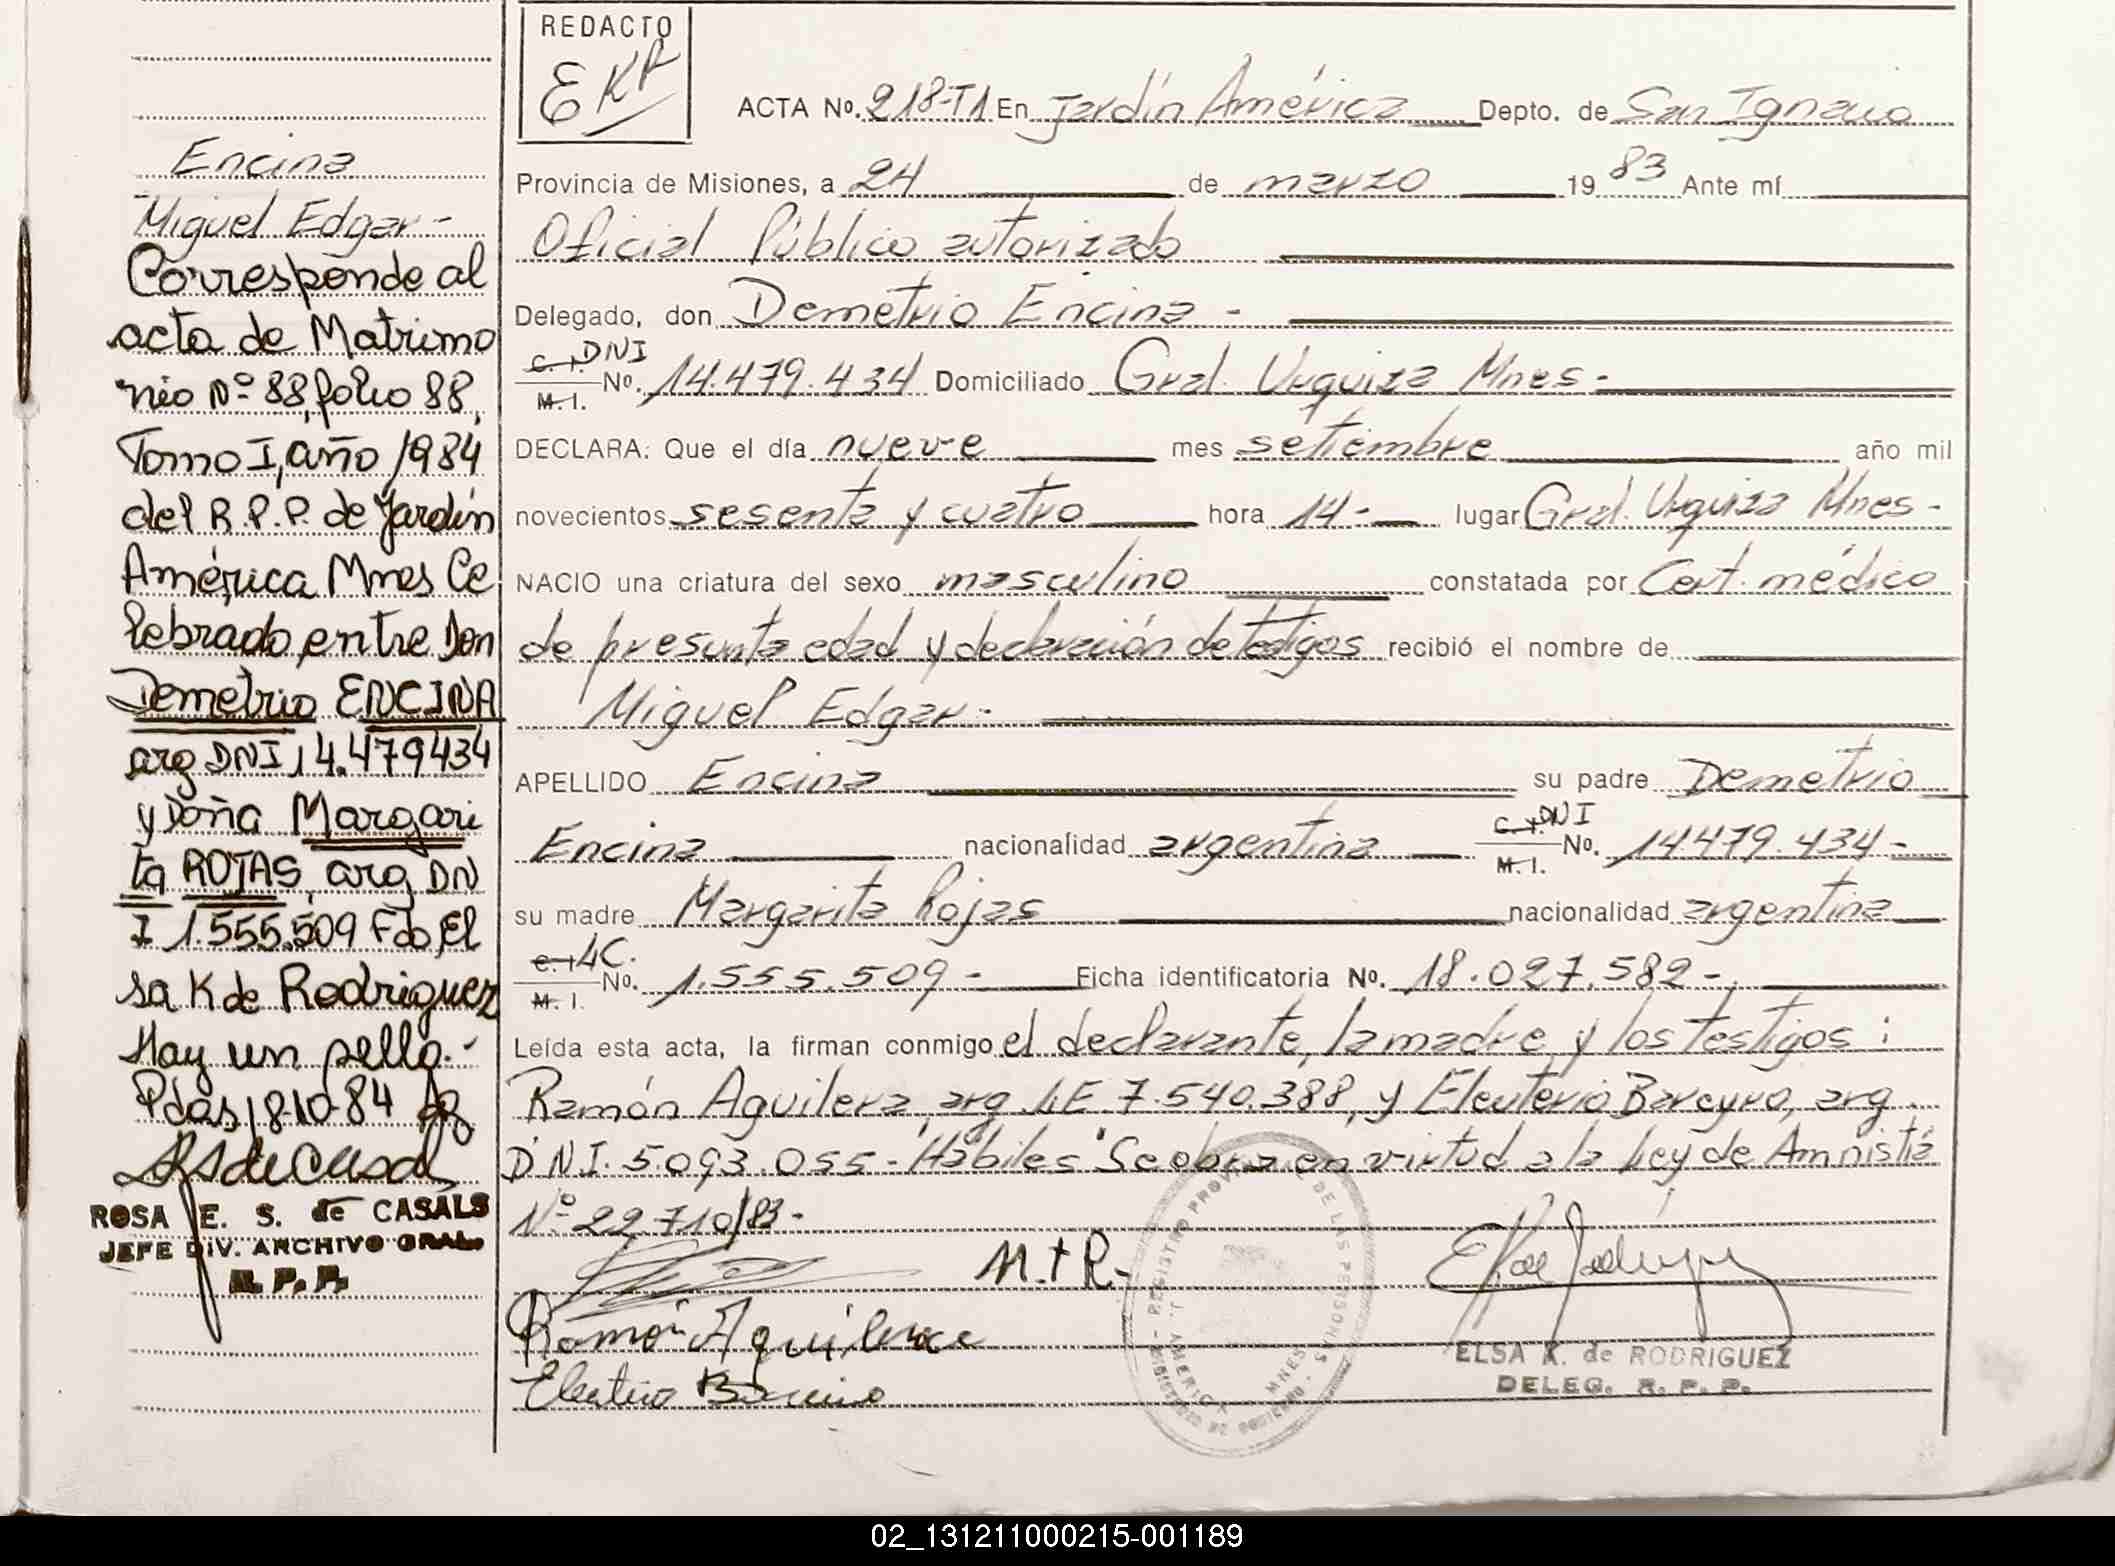 Encina
Miguel Edgar -
Corresponde al
acta de Matrimo
nio Nº 88, folio 88,
Tomo I, año 1984
del R.P.P. de Jardín
América Mnes Ce
lebrado entre Don
Demetrio ENCINA
arg DNI 14.479434
y Doña Margari
ta ROJAS, arg DN
I 1.555.509 Fdo, El
sa K de Rodriguez
Hay un sello.-
Pdas, 18-10-84
ROSA E. S. de CASALS
JEFE DIV. ARCHIVO GRAL.
R. P. P.
REDACTO
EKR
ACTA No. 218-T1 En Jardín América Depto. de San Ignacio
Provincia de Misiones, a 24 de marzo 19 83 Ante mí
Oficial Público autorizado
Delegado, don Demetrio Encina -
C. I. DNI
M. I. No. 14.479.434 Domiciliado Gral. Urquiza Mnes -
DECLARA: Que el día nueve mes setiembre año mil
novecientos sesenta y cuatro hora 14- lugar Gral. Urquiza Mnes -
NACIO una criatura del sexo masculino constatada por Cert. médico
de presunta edad y declaración de testigos recibió el nombre de
Miguel Edgar -
APELLIDO Encina su padre Demetrio
Encina nacionalidad argentina C. I. DNI M. I. No. 14479.434-
su madre Margarita Rojas nacionalidad argentina
C. I. LC. M. I. No. 1.555.509 - Ficha identificatoria No. 18.027.582-
Leída esta acta, la firman conmigo el declarante, la madre y los testigos:
Ramón Aguilera, arg LE 7.540.388, y Eleuterio Bareyro, arg.
DNI. 5.093.055 - Hábiles "Se obra en virtud a la Ley de Amnistía
Nº 22.710/83-
M. + R-
Ramón Aguilera
ELSA K. de RODRIGUEZ
DELEG. R. P. P.
02_131211000215-001189